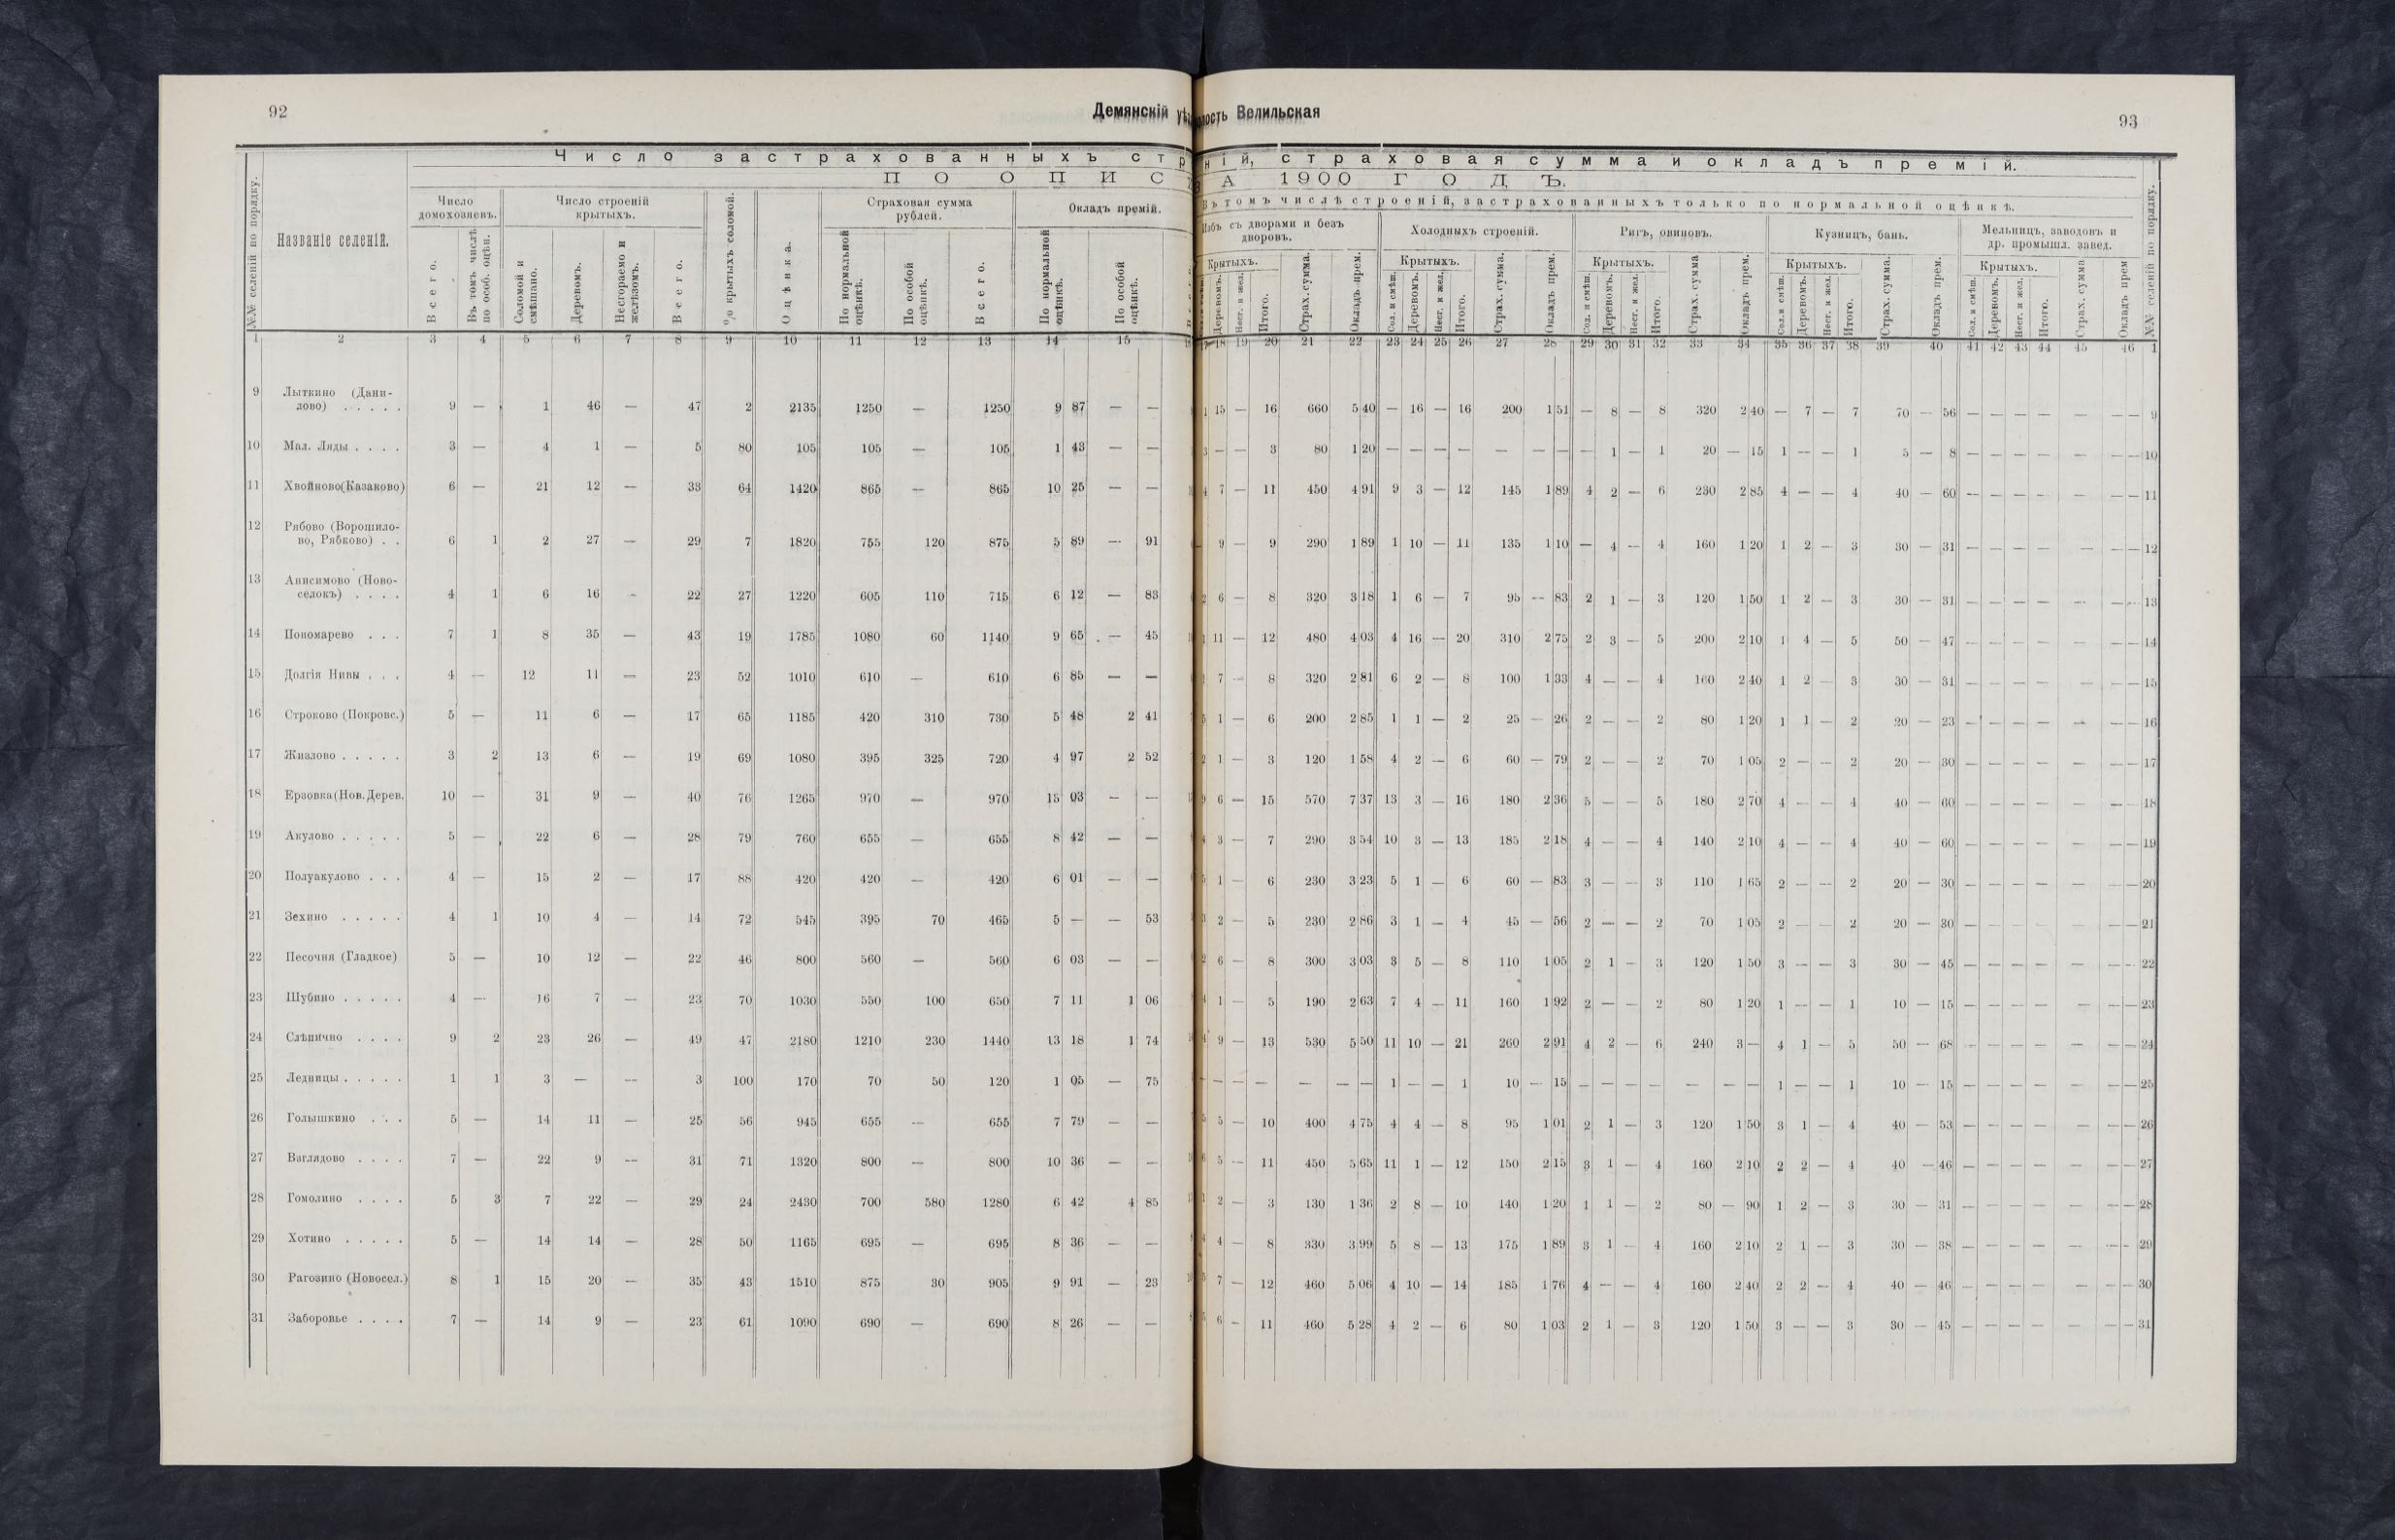 92
Демянскій
лость Велильская
93
Число застрахованныхъ стр
ній, страховая сумма и окладъ премій.
ПО ОПИС
А 1900 ГОДЪ.
Въ томъ числѣ строеній, застрахованныхъ только по нормальной оцѣнкѣ.
№№ селеній по порядку.
Названіе селеній.
Число домохозяевъ.
Всего.
Въ томъ числѣ по особ. оцѣн.
Число строеній крытыхъ.
Соломой и смѣшано.
Деревомъ.
Несгораемо и желѣзомъ.
Всего.
% крытыхъ соломой.
Оцѣнка.
Страховая сумма рублей.
По нормальной оцѣнкѣ.
По особой оцѣнкѣ.
Всего.
Окладъ премій.
По нормальной оцѣнкѣ.
По особой оцѣнкѣ.
Избъ съ дворами и безъ дворовъ.
Крытыхъ.
Деревомъ.
Несг. и жел.
Итого.
Страх. сумма.
Окладъ прем.
Холодныхъ строеній.
Крытыхъ.
Сол. и смѣш.
Деревомъ.
Несг. и жел.
Итого.
Страх. сумма.
Окладъ прем.
Ригъ, овиновъ.
Крытыхъ.
Сол. и смѣш.
Деревомъ.
Несг. и жел.
Итого.
Страх. сумма
Окладъ прем.
Кузницъ, бань.
Крытыхъ.
Сол. и смѣш.
Деревомъ.
Несг. и жел.
Итого.
Страх. сумма.
Окладъ прем.
Мельницъ, заводовъ и др. промышл. завед.
Крытыхъ.
Сол. и смѣш.
Деревомъ.
Несг. и жел.
Итого.
Страх. сумма
Окладъ прем
№№ селеній по порядку.
1 2 3 4 5 6 7 8 9 10 11 12 13 14 15 18 19 20 21 22 23 24 25 26 27 28 29 30 31 32 33 34 35 36 37 38 39 40 41 42 43 44 45 46 1
9 Лыткино (Дани-
лово) . . . . . 9 — 1 46 — 47 2 2135 1250 — 1250 9 87 — — 1 15 — 16 660 5 40 — 16 — 16 200 1 51 — 8 — 8 320 2 40 — 7 — 7 70 — 56 — — — — — — — 9
10 Мал. Ляды . . . . 3 — 4 1 — 5 80 105 105 — 105 1 43 — — 3 — — 3 80 1 20 — — — — — — — — 1 — 1 20 — 15 1 — — 1 5 — 8 — — — — — — — 10
11 Хвойново(Казаково) 6 — 21 12 — 33 64 1420 865 — 865 10 25 — — 4 7 — 11 450 4 91 9 3 — 12 145 1 89 4 2 — 6 230 2 85 4 — — 4 40 — 60 — — — — — — — 11
12 Рябово (Ворошило-
во, Рябково) . . 6 1 2 27 — 29 7 1820 755 120 875 5 89 — 91 — 9 — 9 290 1 89 1 10 — 11 135 1 10 — 4 — 4 160 1 20 1 2 — 3 30 — 31 — — — — — — — 12
13 Анисимово (Ново-
селокъ) . . . . 4 1 6 16 - 22 27 1220 605 110 715 6 12 — 83 2 6 — 8 320 3 18 1 6 — 7 95 — 83 2 1 — 3 120 1 50 1 2 — 3 30 — 31 — — — — — — — 13
14 Пономарево . . . 7 1 8 35 — 43 19 1785 1080 60 1140 9 65 — 45 1 11 — 12 480 4 03 4 16 — 20 310 2 75 2 3 — 5 200 2 10 1 4 — 5 50 — 47 — — — — — — — 14
15 Долгія Нивы . . . 4 — 12 11 — 23 52 1010 610 — 610 6 85 — — 1 7 — 8 320 2 81 6 2 — 8 100 1 33 4 — — 4 160 2 40 1 2 — 3 30 — 31 — — — — — — — 15
16 Строково (Покровс.) 5 — 11 6 — 17 65 1185 420 310 730 5 48 2 41 5 1 — 6 200 2 85 1 1 — 2 25 — 26 2 — — 2 80 1 20 1 1 — 2 20 — 23 — — — — — — — 16
17 Жизлово . . . . . 3 2 13 6 — 19 69 1080 395 325 720 4 97 2 52 2 1 — 3 120 1 58 4 2 — 6 60 — 79 2 — — 2 70 1 05 2 — — 2 20 — 30 — — — — — — — 17
18 Ерзовка(Нов.Дерев. 10 — 31 9 — 40 76 1265 970 — 970 15 03 — — 9 6 — 15 570 7 37 13 3 — 16 180 2 36 5 — — 5 180 2 70 4 — — 4 40 — 60 — — — — — — — 18
19 Акулово . . . . . 5 — 22 6 — 28 79 760 655 — 655 8 42 — — 4 3 — 7 290 3 54 10 3 — 13 185 2 18 4 — — 4 140 2 10 4 — — 4 40 — 60 — — — — — — — 19
20 Полуакулово . . . 4 — 15 2 — 17 88 420 420 — 420 6 01 — — 5 1 — 6 230 3 23 5 1 — 6 60 — 83 3 — — 3 110 1 65 2 — — 2 20 — 30 — — — — — — — 20
21 Зехино . . . . . 4 1 10 4 — 14 72 545 395 70 465 5 — — 53 3 2 — 5 230 2 86 3 1 — 4 45 — 56 2 — — 2 70 1 05 2 — — 2 20 — 30 — — — — — — — 21
22 Песочня (Гладкое) 5 — 10 12 — 22 46 800 560 — 560 6 03 — — 2 6 — 8 300 3 03 3 5 — 8 110 1 05 2 1 — 3 120 1 50 3 — — 3 30 — 45 — — — — — — — 22
23 Шубино . . . . . 4 — 16 7 — 23 70 1030 550 100 650 7 11 1 06 4 1 — 5 190 2 63 7 4 — 11 160 1 92 2 — — 2 80 1 20 1 — — 1 10 — 15 — — — — — — — 23
24 Слѣпично . . . . 9 2 23 26 — 49 47 2180 1210 230 1440 13 18 1 74 4 9 — 13 530 5 50 11 10 — 21 260 2 91 4 2 — 6 240 3 — 4 1 — 5 50 — 68 — — — — — — — 24
25 Ледвицы . . . . . 1 1 3 — — 3 100 170 70 50 120 1 05 — 75 — — — — — — — 1 — — 1 10 — 15 — — — — — — — 1 — — 1 10 — 15 — — — — — — — 25
26 Голышкино . . . 5 — 14 11 — 25 56 945 655 — 655 7 79 — — 5 5 — 10 400 4 75 4 4 — 8 95 1 01 2 1 — 3 120 1 50 3 1 — 4 40 — 53 — — — — — — — 26
27 Взглядово . . . . 7 — 22 9 — 31 71 1320 800 — 800 10 36 — — 6 5 — 11 450 5 65 11 1 — 12 150 2 15 3 1 — 4 160 2 10 2 2 — 4 40 — 46 — — — — — — — 27
28 Гомолино . . . . 5 3 7 22 — 29 24 2430 700 580 1280 6 42 4 85 1 2 — 3 130 1 36 2 8 — 10 140 1 20 1 1 — 2 80 — 90 1 2 — 3 30 — 31 — — — — — — — 28
29 Хотино . . . . . 5 — 14 14 — 28 50 1165 695 — 695 8 36 — — 4 4 — 8 330 3 99 5 8 — 13 175 1 89 3 1 — 4 160 2 10 2 1 — 3 30 — 38 — — — — — — — 29
30 Рагозино (Новосел.) 8 1 15 20 — 35 43 1510 875 30 905 9 91 — 23 5 7 — 12 460 5 06 4 10 — 14 185 1 76 4 — — 4 160 2 40 2 2 — 4 40 — 46 — — — — — — — 30
31 Заборовье . . . . 7 — 14 9 — 23 61 1090 690 — 690 8 26 — — 5 6 — 11 460 5 28 4 2 — 6 80 1 03 2 1 — 3 120 1 50 3 — — 3 30 — 45 — — — — — — — 31